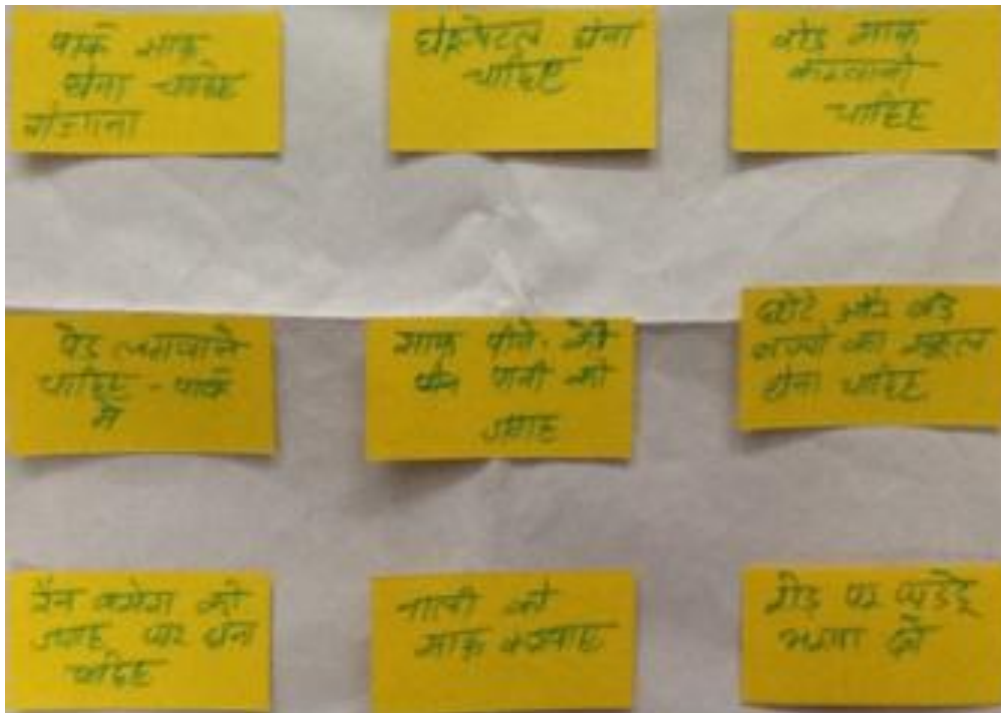 पार्क साफ
होना चाहिए
रोजाना
होस्पिटल होना
चाहिए
रोड साफ
करवानी
चाहिए
पेड लगवाने
चाहिए - पार्क
मे
साफ पीने
पानी की
जगह
छोटे और बडे
बच्चो का स्कूल
होना चाहिए
रेन बसेरा की
जगह पार होना
चाहिए
नाली को
साफ करवाए
रोड पर